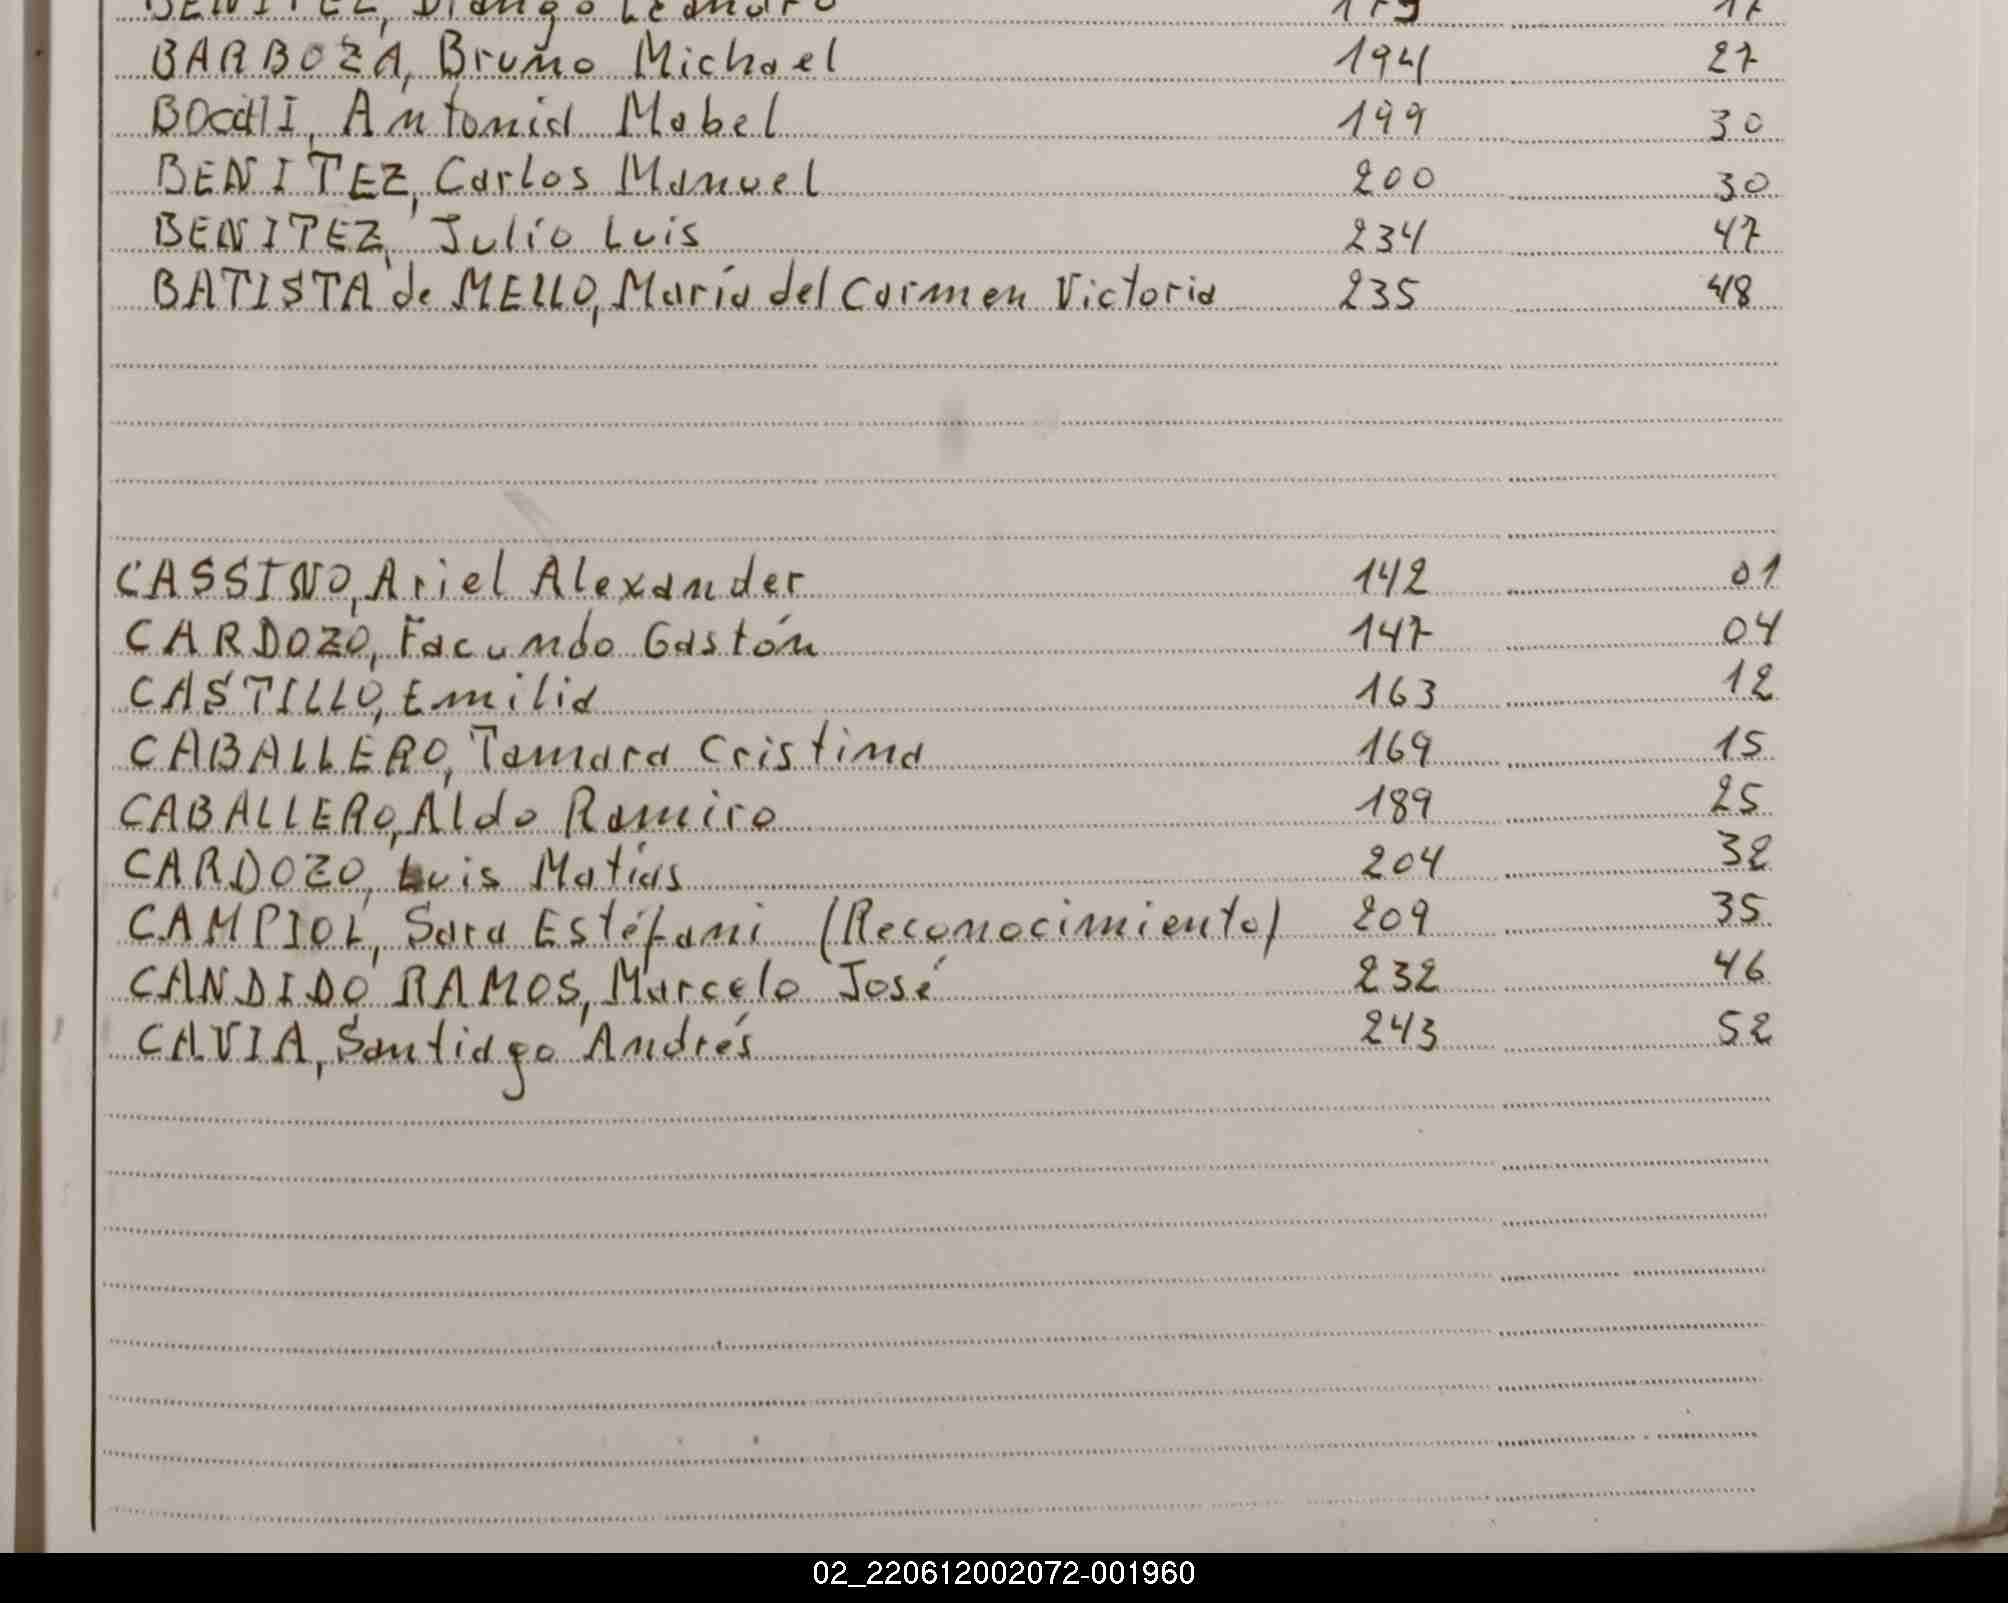 BENITEZ, Diango Leandro 179 17
BARBOZA, Bruno Michael 194 27
Antonia Mabel 199 30
BENITEZ, Carlos Manuel 200 30
BENITEZ, Julio Luis 234 47
BATISTA de MELLO, María del Carmen Victoria 235 48
CASSINO, Ariel Alexander 142 01
CARDOZO, Facundo Gastón 147 04
CASTILLO, Emilia 163 12
CABALLERO, Tamara Cristina 169 15
CABALLERO, Aldo Ramiro 189 25
CARDOZO, Luis Matías 204 32
CAMPIOL, Sara Estéfani (Reconocimiento) 209 35
CANDIDO RAMOS, Marcelo José 232 46
CAVIA, Santiago Andrés 243 52
02_220612002072-001960